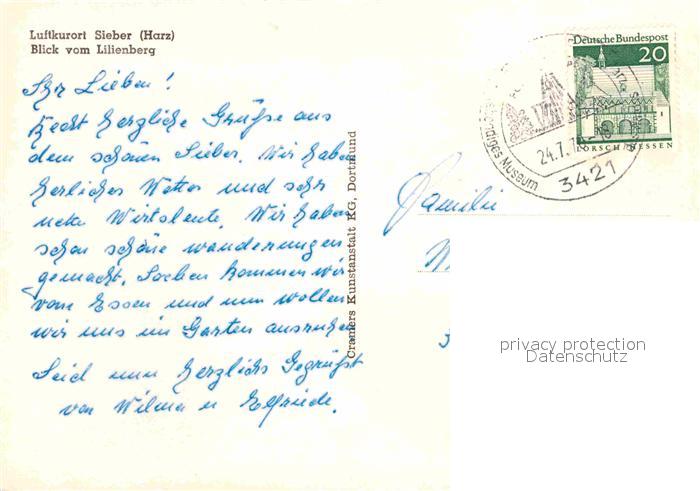 Luftkurort Sieber (Harz)
Blick vom Lilienberg
Ihr Lieben!
Recht herzliche Grüße aus
dem schönen Sieber. Wir haben
herliches Wetter und sehr
nette Wirtsleute. Wir haben
schon schöne wanderungen
gemacht. Soeben kommen wir
vom Essen und nun wollen
wir uns im Garten ausruhen
Seid nun herzlichs Gegrüßt
von Wilma u Elfriede.
Cramers Kunstanstalt KG, Dortmund
Deutsche Bundespost
20
LORSCH/HESSEN
24.7.7
Museum
3421
Familie
privacy protection
Datenschutz